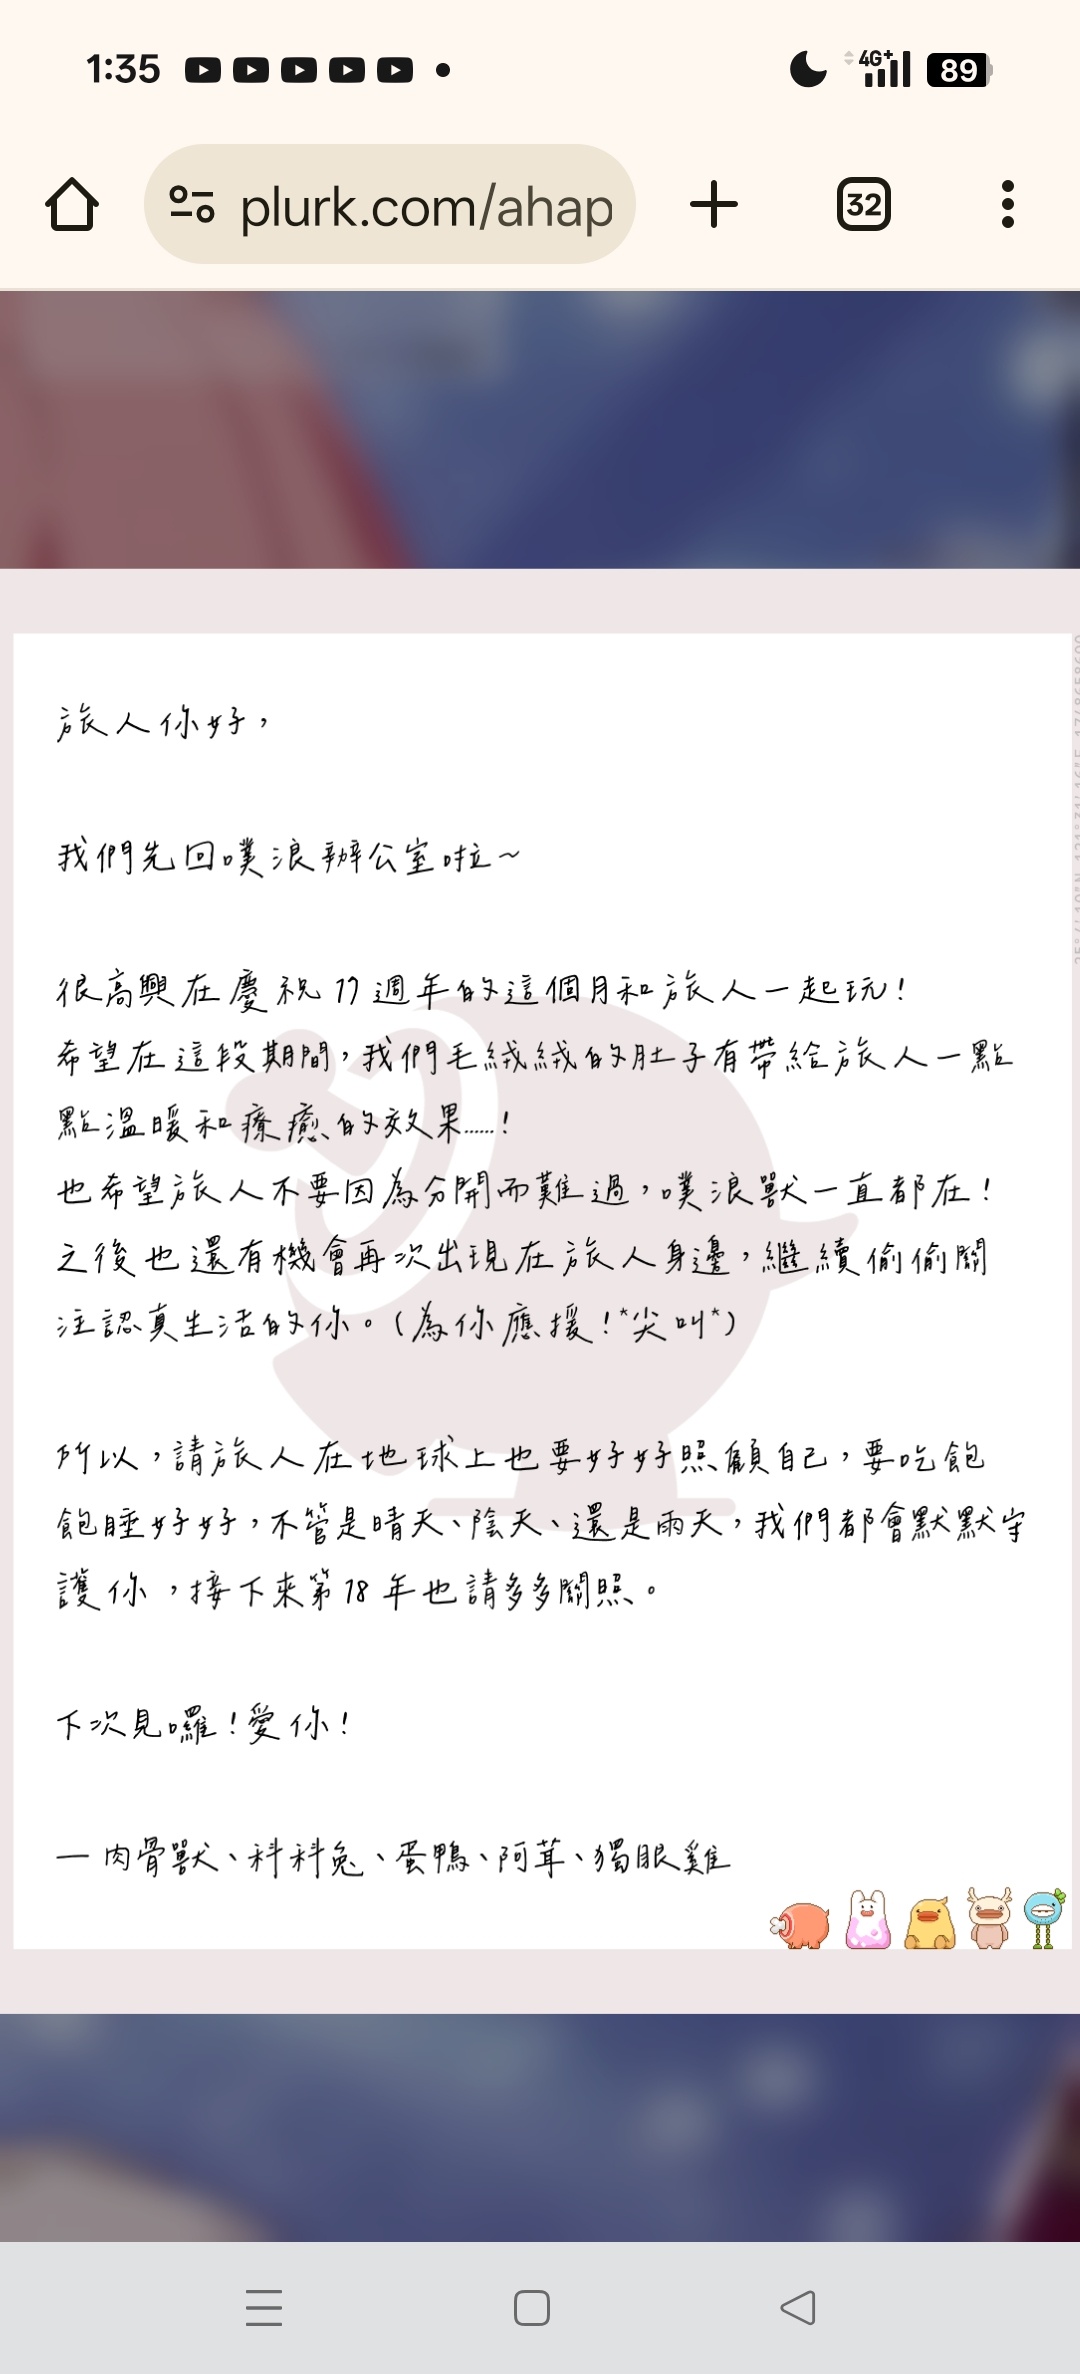 1:35
4G+
89
plurk.com/ahap
32
旅人你好，
我們先回噗浪辦公室啦~
很高興在慶祝 17 週年的這個月和旅人一起玩！
希望在這段期間，我們毛絨絨的肚子有帶給旅人一點
點溫暖和療癒的效果......！
也希望旅人不要因為分開而難過，噗浪獸一直都在！
之後也還有機會再次出現在旅人身邊，繼續偷偷關
注認真生活的你。(為你應援！*尖叫*)
所以，請旅人在地球上也要好好照顧自己，要吃飽
飽睡好好，不管是晴天、陰天、還是雨天，我們都會默默守
護你，接下來第 18 年也請多多關照。
下次見囉！愛你！
— 肉骨獸、科科兔、蛋鴨、阿茸、獨眼雞